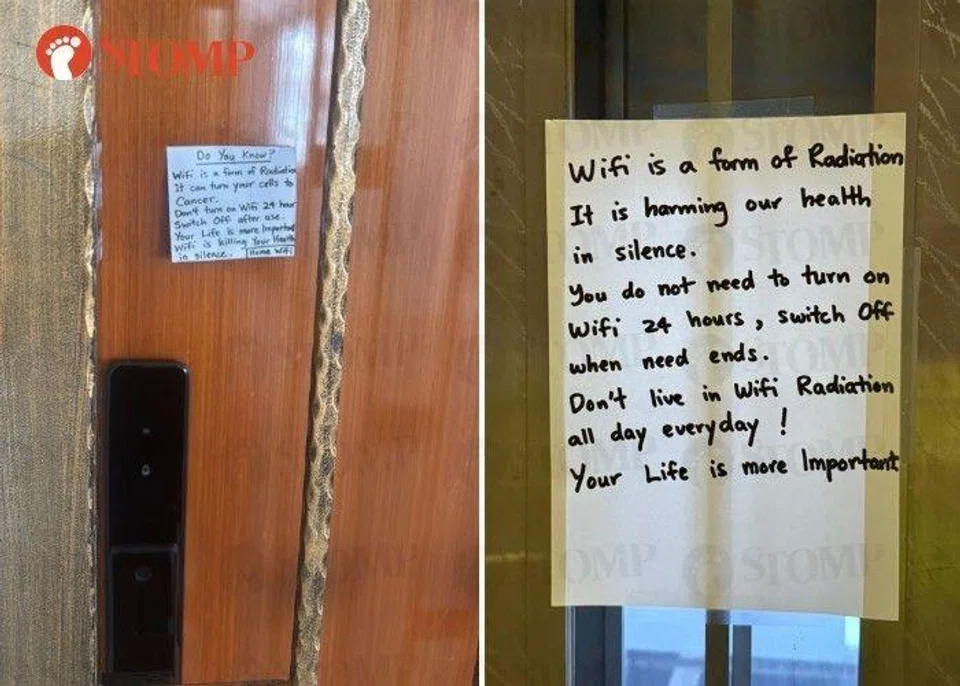 STOMP
Do You Know?
Wifi is a form of Radiation
It can turn your cells to
Cancer.
Don't turn on Wifi 24 hour
Switch Off after use.
Your Life is more Important
Wifi is killing Your Health
in silence. Home Wifi
Wifi is a form of Radiation
It is harming our health
in silence.
You do not need to turn on
Wifi 24 hours, switch Off
when need ends.
Don't live in Wifi Radiation
all day everyday!
Your Life is more Important